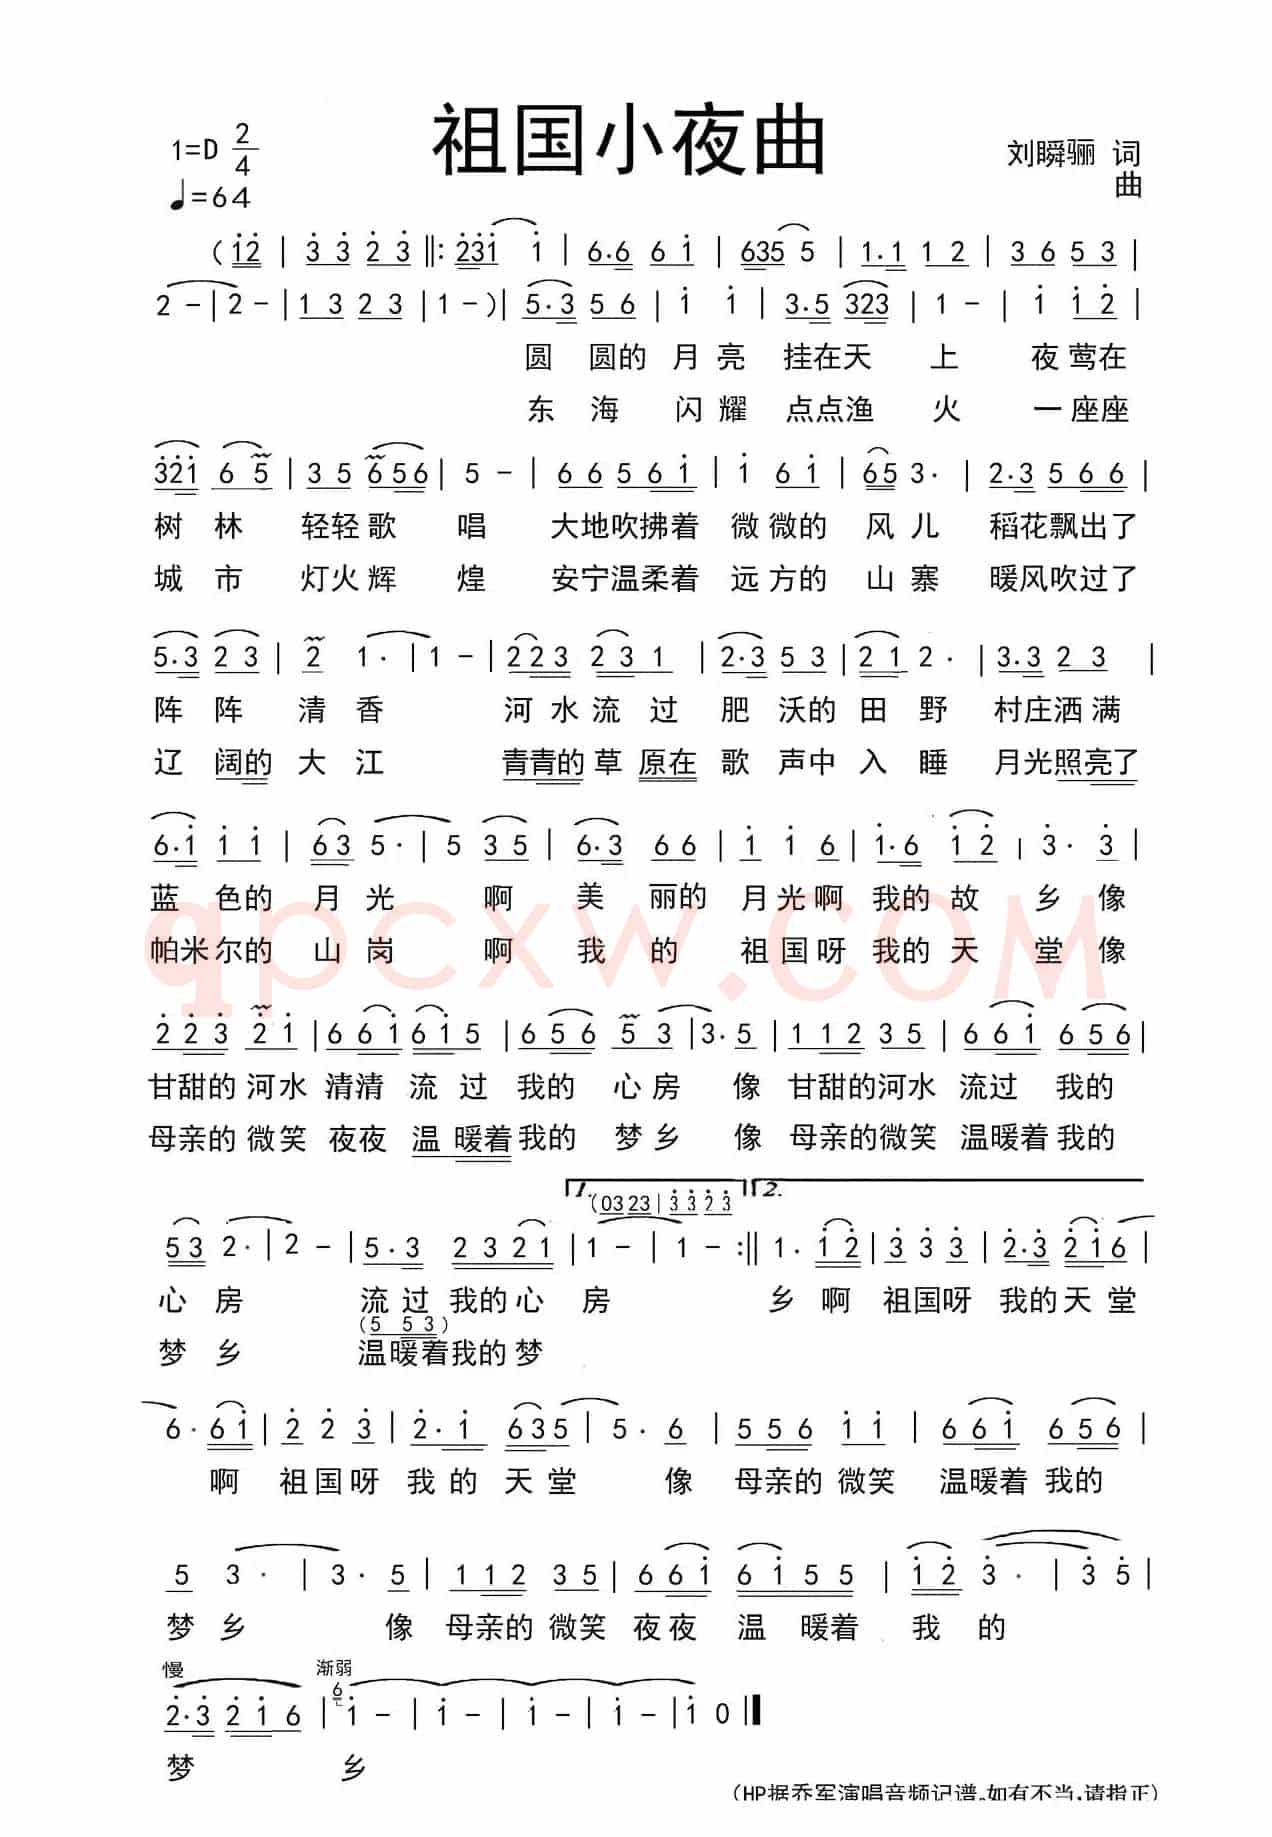 祖国小夜曲
1=D 2/4
♩=64
刘瞬骊 词
曲
(i̇2̇ | 3̇ 3̇ 2̇ 3̇ ‖: 2̇3̇i̇ i̇ | 6·6 6 i̇ | 635 5 | 1·1 1 2 | 3 6 5 3 |
2 - | 2 - | 1 3 2 3 | 1 - ) | 5·3 5 6 | i̇ i̇ | 3·5 323 | 1 - | i̇ i̇ 2̇ |
圆 圆的 月 亮 挂在天 上 夜 莺在
东 海 闪 耀 点点渔 火 一 座座
3̇2̇i̇ 6 5 | 3 5 656 | 5 - | 6 6 5 6 i̇ | i̇ 6 i̇ | 65 3· | 2·3 5 6 6 |
树 林 轻轻歌 唱 大地吹拂着 微 微的 风 儿 稻花飘出了
城 市 灯火辉 煌 安宁温柔着 远 方的 山 寨 暖风吹过了
5·3 2 3 | 2 1· | 1 - | 2 2 3 2 3 1 | 2·3 5 3 | 2 1 2· | 3·3 2 3 |
阵 阵 清 香 河 水 流 过 肥 沃的 田 野 村庄洒 满
辽 阔的 大 江 青青的 草 原在 歌 声中 入 睡 月光照亮了
6·i̇ i̇ i̇ | 6 3 5· | 5 3 5 | 6·3 6 6 | i̇ i̇ 6 | i̇·6 i̇ 2̇ | 3̇· 3̇ |
蓝 色的 月 光 啊 美 丽的 月光啊 我的 故 乡 像
帕米尔的 山 岗 啊 我 的 祖国呀 我的 天 堂 像
2̇ 2̇ 3̇ 2̇ i̇ | 6 6 i̇ 6 i̇ 5 | 6 5 6 5 3 | 3· 5 | 1 1 2 3 5 | 6 6 i̇ 6 5 6 |
甘甜的 河水 清清 流 过 我的 心 房 像 甘甜的河水 流过 我的
母亲的 微笑 夜夜 温 暖着 我的 梦 乡 像 母亲的微笑 温暖着 我的
1. 2.
(03 23 | 3̇ 3̇ 2̇ 3̇
5 3 2· | 2 - | 5·3 2 3 2 1 | 1 - | 1 - :‖ 1· i̇ 2̇ | 3̇ 3̇ 3̇ | 2̇·3̇ 2̇ i̇ 6 |
心 房 流 过 我的心 房 乡 啊 祖国呀 我的天 堂
(5 5 3)
梦 乡 温暖着我的梦
6· 6 i̇ | 2̇ 2̇ 3̇ | 2̇·i̇ 6 3 5 | 5· 6 | 5 5 6 i̇ i̇ | 6 6 i̇ 6 5 6 |
啊 祖国呀 我的 天 堂 像 母亲的 微笑 温暖着 我的
5 3· | 3· 5 | 1 1 2 3 5 | 6 6 i̇ 6 i̇ 5 5 | i̇ 2̇ 3̇· | 3̇ 5 |
梦 乡 像 母亲的 微笑 夜夜 温 暖着 我 的
慢 渐弱
2̇·3̇ 2̇ i̇ 6 | 6 i̇ - | i̇ - | i̇ - | i̇ - | i̇ 0 ‖
梦 乡
(HP据乔军演唱音频记谱。如有不当,请指正)
qpcxw.COM